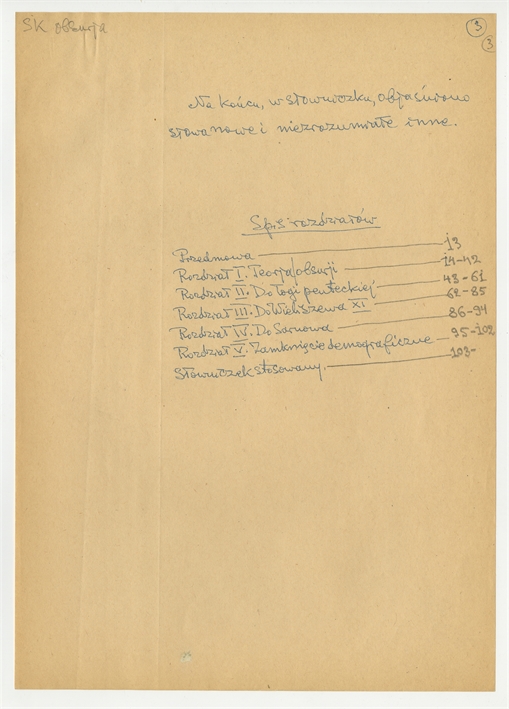 SK obsurja
3
3
Na końcu, w słowniczku, objaśniono
słowa nowe i niezrozumiałe inne.
Spis rozdziałów
Przedmowa 13
Rozdział I. Teorja obsurji 14-42
Rozdział II. Do Łogi penteckiej 43-61
Rozdział III. Do Wieliszewa XI 62-85
Rozdział IV. Do Sarnowa 86-94
Rozdział V. Zamknięcie demograficzne 95-102
Słowniczek stosowany. 103-